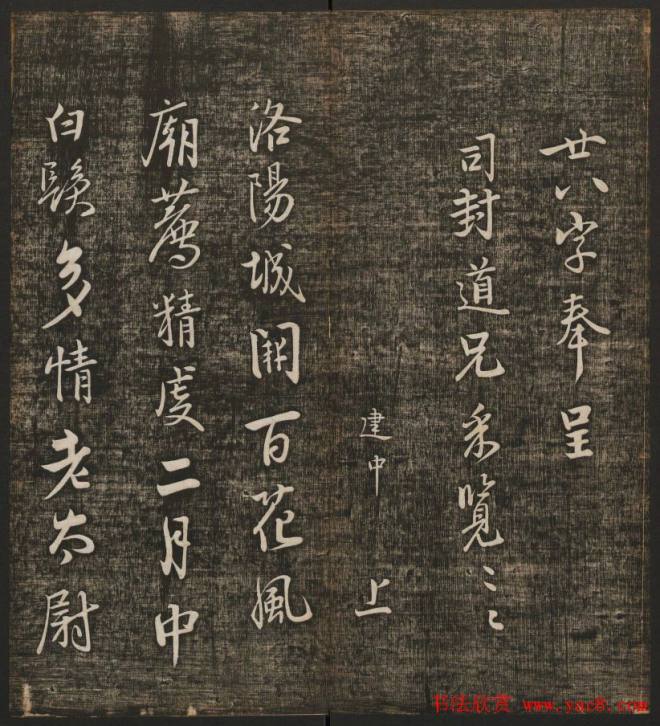 廿八字奉呈
司封道兄采覽
建中 上
洛陽城開百花風
廟薦精虔二月中
白多情老太尉
书法欣赏 www.yac8.com